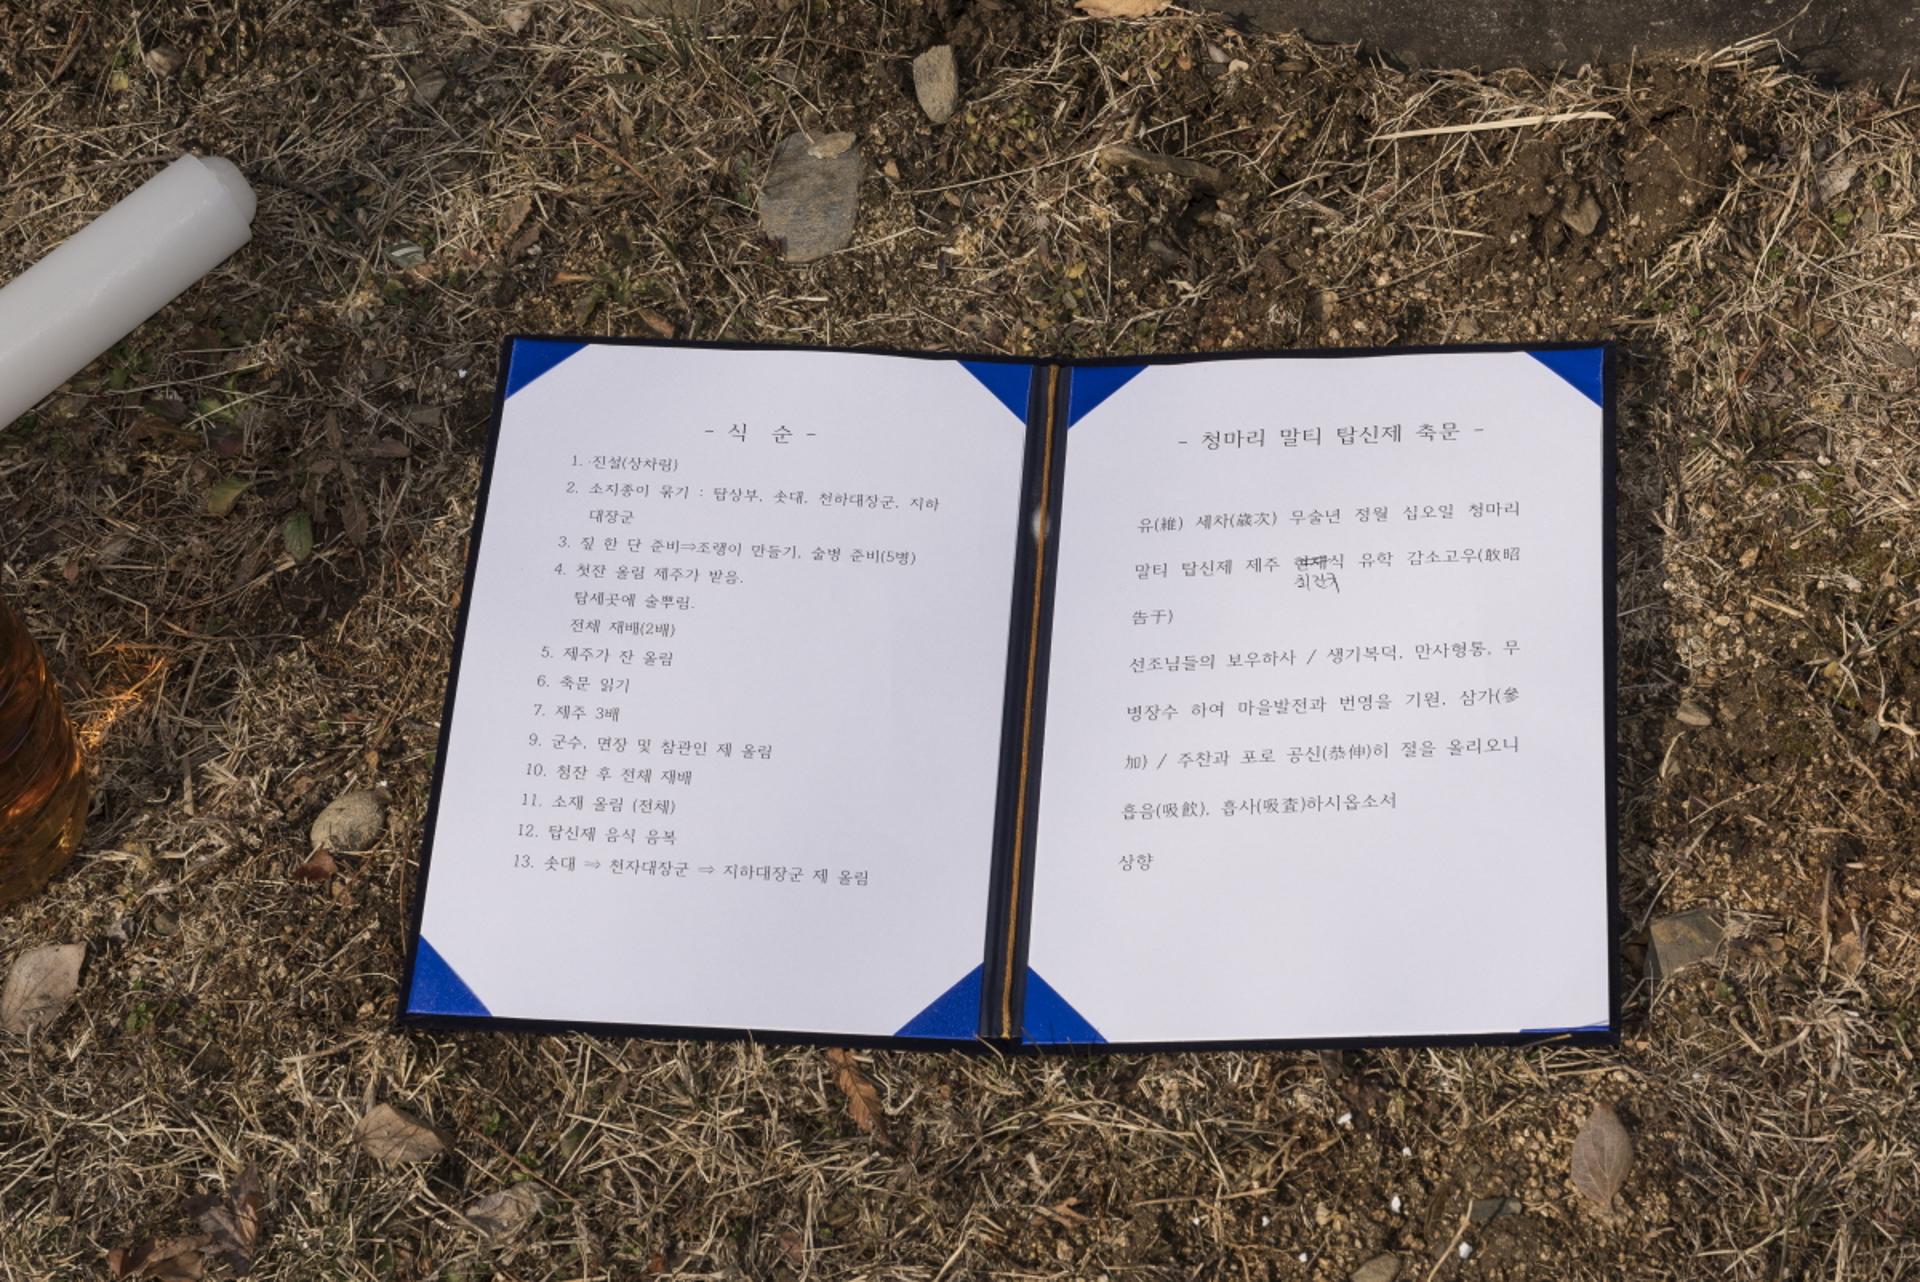 - 식 순 -
1. 진설(상차림)
2. 소지종이 묶기 : 탑상부, 솟대, 천하대장군, 지하
대장군
3. 짚 한 단 준비⇒조랭이 만들기, 술병 준비(5병)
4. 첫잔 올림 제주가 받음.
탑세곳에 술뿌림.
전체 재배(2배)
5. 제주가 잔 올림
6. 축문 읽기
7. 제주 3배
9. 군수, 면장 및 참관인 제 올림
10. 첨잔 후 전체 재배
11. 소재 올림 (전체)
12. 탑신제 음식 음복
13. 솟대 ⇒ 천자대장군 ⇒ 지하대장군 제 올림
- 청마리 말티 탑신제 축문 -
유(維) 세차(歲次) 무술년 정월 십오일 청마리
말티 탑신제 제주 유학 감소고우(敢昭
告于)
선조님들의 보우하사 / 생기복덕, 만사형통, 무
병장수 하여 마을발전과 번영을 기원, 삼가(參
加) / 주찬과 포로 공신(恭伸)히 절을 올리오니
흡음(吸飮), 흡사(吸査)하시옵소서
상향